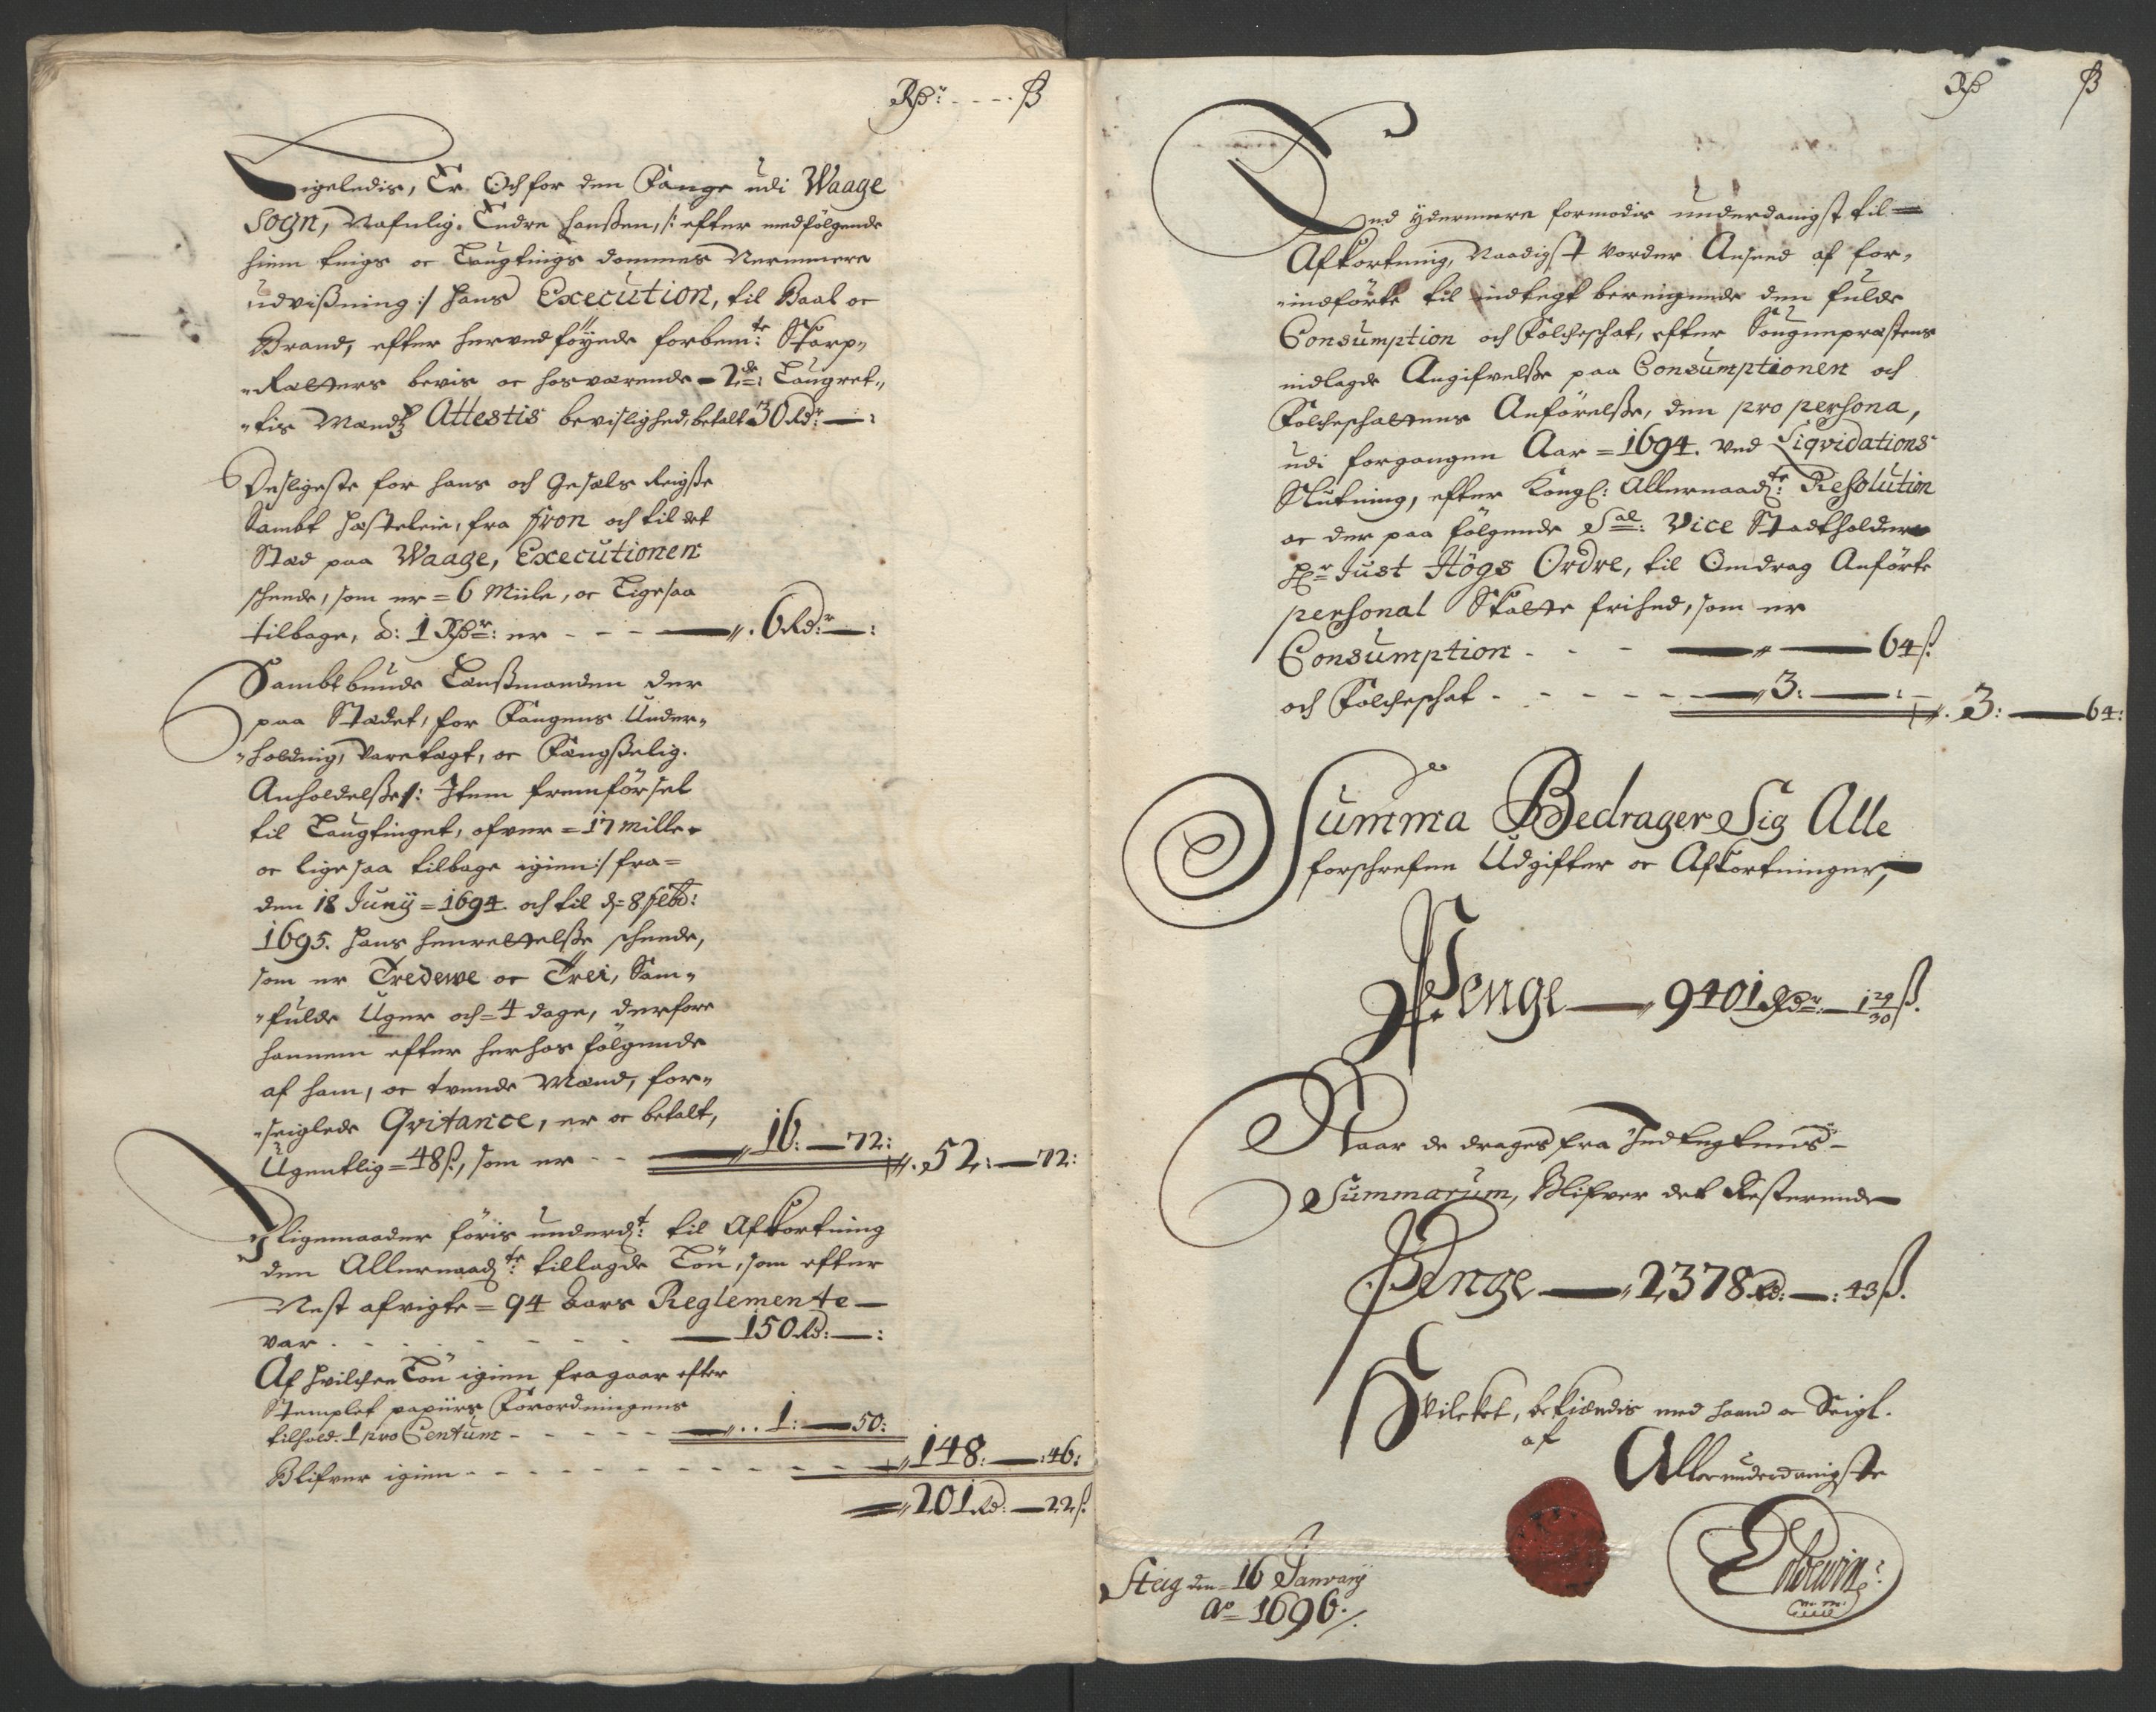 Rdr: - - - - ß
Ligeledis, Er Och for den Fange udi Waage
Sogn, Nafnlig. Endre Hanßen, /: efter medfölgende
hiem tings oc Laugtings dommes Nermmere
udvißning :/ hans Execution, til Baal oc
Brand, efter herved föyede forbemte: Skarp„
„Rætters bevis oc hosværende 2de: Laugret„
„tis Mænds Attestis bevislighed, betalt 30 Rdr: — :
Desligeste for hans och Gesæls Reigße
Sambt Hesteleie, fra Fron och til det
Sted paa Waage, Executionen
scheede, som er = 6 Miile, oc Ligesaa
tilbage, à: 1 Rdr: er - - - — „. 6 Rdr: — :
Sambt bunde Lensmanden der
paa Stædet, for Fangens Under„
„holdnig, varetægt, oc Fængßelig.
Anholdelße /: Item fremförsel
til Laugtinget, ofver = 17 Mille
oc lige saa tilbage igien :/ fra =
den 18 Junij = 1694 och til d = 8 febr:
1695. hans henrettelße scheede,
som er Tredewe oc Trei, Sam„
„fulde Uger och = 4 dage, derfore
hannem efter herhos fölgende
af ham, oc tvende Mænd, for„
„seiglede Qvitance, er oc betalt,
Ugentlig = 48 ß, som er - - — „ 16: — 72: „. 52: — 72:
J ligemaader föris underdt: til Afkortning
den Allernaadte: tillagde Lön, som efter
Nest afvigte = 94 Aars Reglemente —
var - - - - - — 150 Rd: — :
Af hvilchen Lön igien fragaar efter
Stemplet papiirs Forordningens
tilhold. 1 pro Centum - - - - - — „. . 1: — 50:
Blifver igien - - - - - - - - - — „ 148: — : 46:
— „ 201 Rd: — 22 ß.
Rdr ß
End ydermere formodis underdanigst til =
Afkortning, Naadigst vorder Anseed af for„
„indförte til indtegt beregnede den fulde
Consumption och Folcheschat, efter Sougnepræstens
indlagde Angifvelße paa Consumptionen och
Folcheschattens Anförelße, den pro persona,
udi forgangen Aar = 1694. ved Liqvidations
Slutning, efter Kongl: Allernaadte: Resolution
oc der paa fölgende Sal: Vice Stadtholders
Hr Just Högs Ordre, til Omdrag Anförte
personal Skatte frihed, som er
Consumption - - - — „ — 64 ß.
och Folcheschat - - - - - — „ 3: — : - „. 3: — 64:
Summa Bedrager Sig Alle
forschrefne Udgifter oc Afkortninger,
Penge — „ 9401 Rdr: — 1 29/30 ß.
Naar de drages fra Indtegtens -
Summarum, Blifver det Resterende
Penge — „ 2378 Rd: — : 43 ß.
Hvilcket, bekiendis med haand oc Seigl.
af
Allerunderdanigste
Steig den = 16 Janvarij
Ao 1696. /.